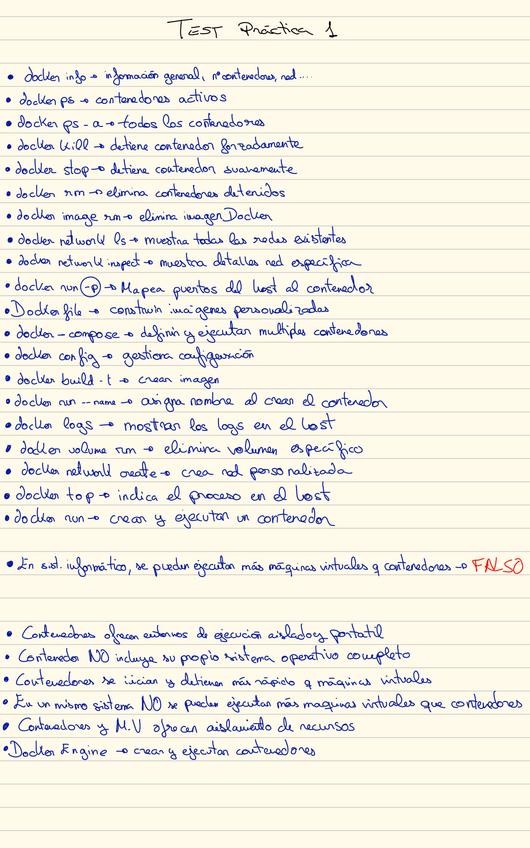 TEST Práctica 1
• docker info → información general, nº contenedores, red....
• docker ps → contenedores activos
• docker ps -a → todos los contenedores
• docker kill → detiene contenedor forzadamente
• docker stop → detiene contenedor suavemente
• docker rm → elimina contenedores detenidos
• docker image rm → elimina imagen Docker
• docker network ls → muestra todas las redes existentes
• docker network inspect → muestra detalles red específica
• docker run -p → Mapea puertos del host al contenedor
• Dockerfile → construir imágenes personalizadas
• docker-compose → definir y ejecutar multiples contenedores
• docker config → gestiona configuración
• docker build -t → crear imagen
• docker run --name → asigna nombre al crear el contenedor
• docker logs → mostrar los logs en el host
• docker volume rm → elimina volumen específico
• docker network create → crea red personalizada
• docker top → indica el proceso en el host
• docker run → crear y ejecutar un contenedor
• En sist. informático, se pueden ejecutar más máquinas virtuales q contenedores → FALSO
• Contenedores ofrecen entornos de ejecución aislado y portatil
• Contenedor NO incluye su propio sistema operativo completo
• Contenedores se inician y detienen más rápido q máquinas virtuales
• En un mismo sistema NO se pueden ejecutar más maquinas virtuales que contenedores
• Contenedores y M.V ofrecen aislamiento de recursos
• Docker Engine → crear y ejecutar contenedores